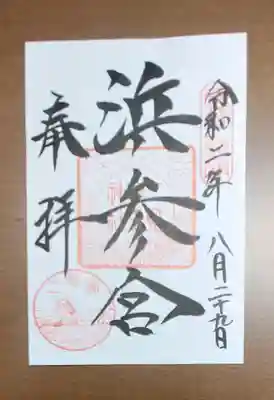 令和二年 八月二十九日
浜参宮
奉拝